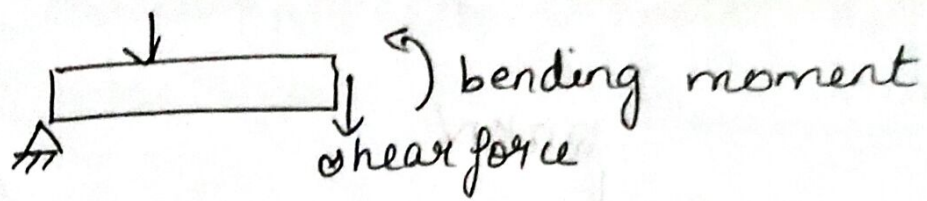 bending moment
shear force